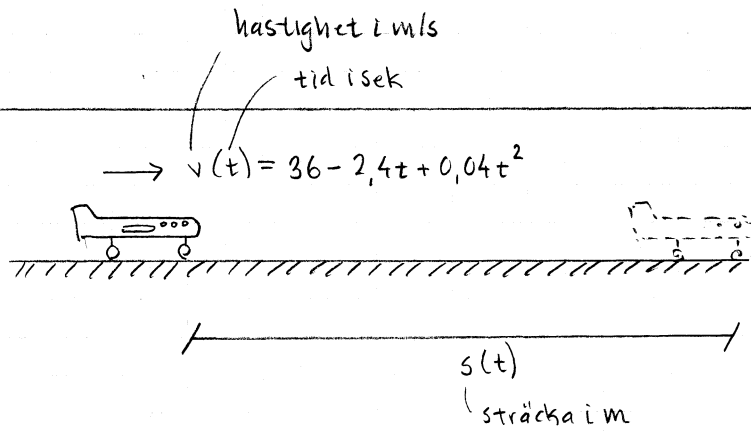 hastighet i m/s
tid i sek
v(t) = 36 - 2,4t + 0,04t²
s(t)
sträcka i m